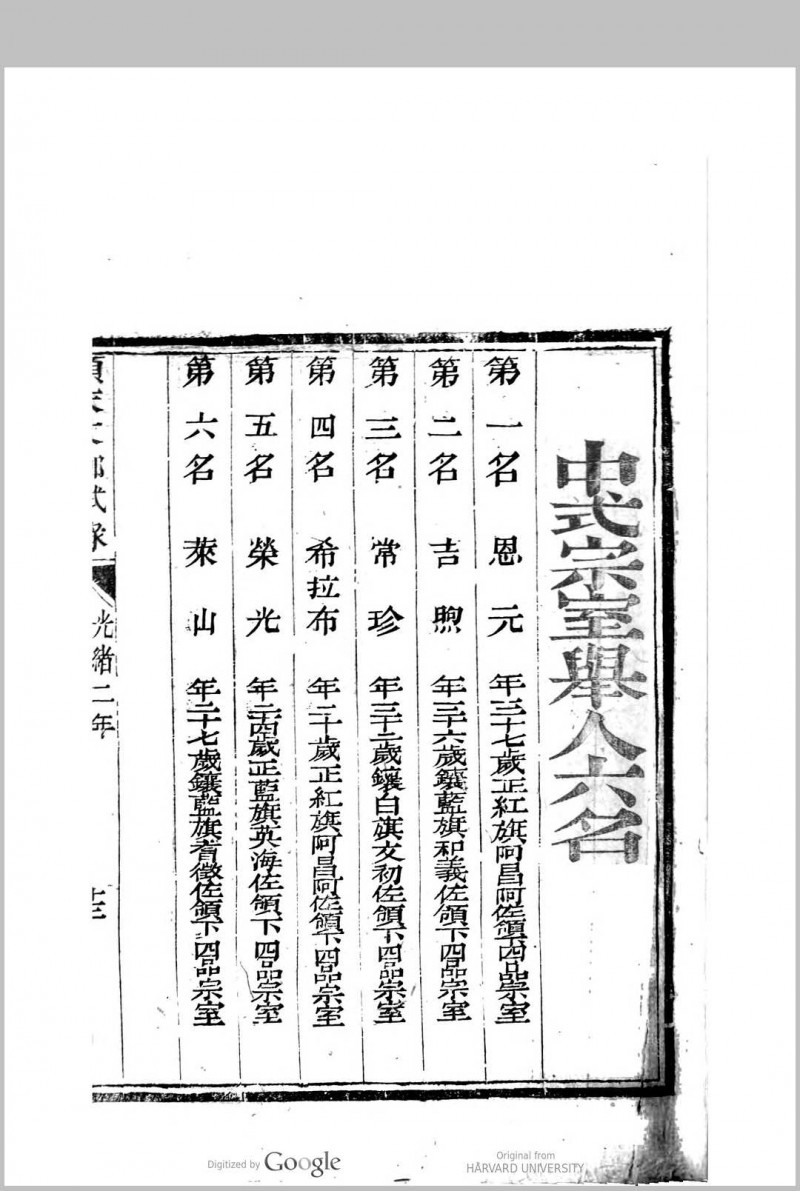 中式宗室舉人六名
第一名 恩元 年三十七歲正紅旗阿昌阿佐領下四品宗室
第二名 吉煦 年三十六歲鑲藍旗和義佐領下四品宗室
第三名 常珍 年三十二歲鑲白旗文初佐領下四品宗室
第四名 希拉布 年二十歲正紅旗阿昌阿佐領下四品宗室
第五名 榮光 年二十四歲正藍旗英海佐領下四品宗室
第六名 萊山 年二十七歲鑲藍旗徵佐領下四品宗室
鄉試錄 光緒二年 十三
Digitized by Google
Original from
HARVARD UNIVERSITY